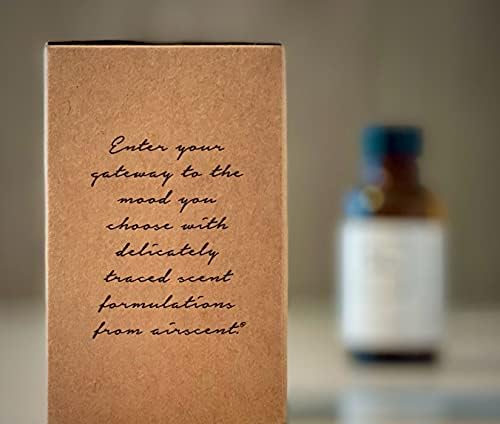 Enter your
gateway to the
mood you
choose with
delicately
traced scent
formulations
from airscent.®